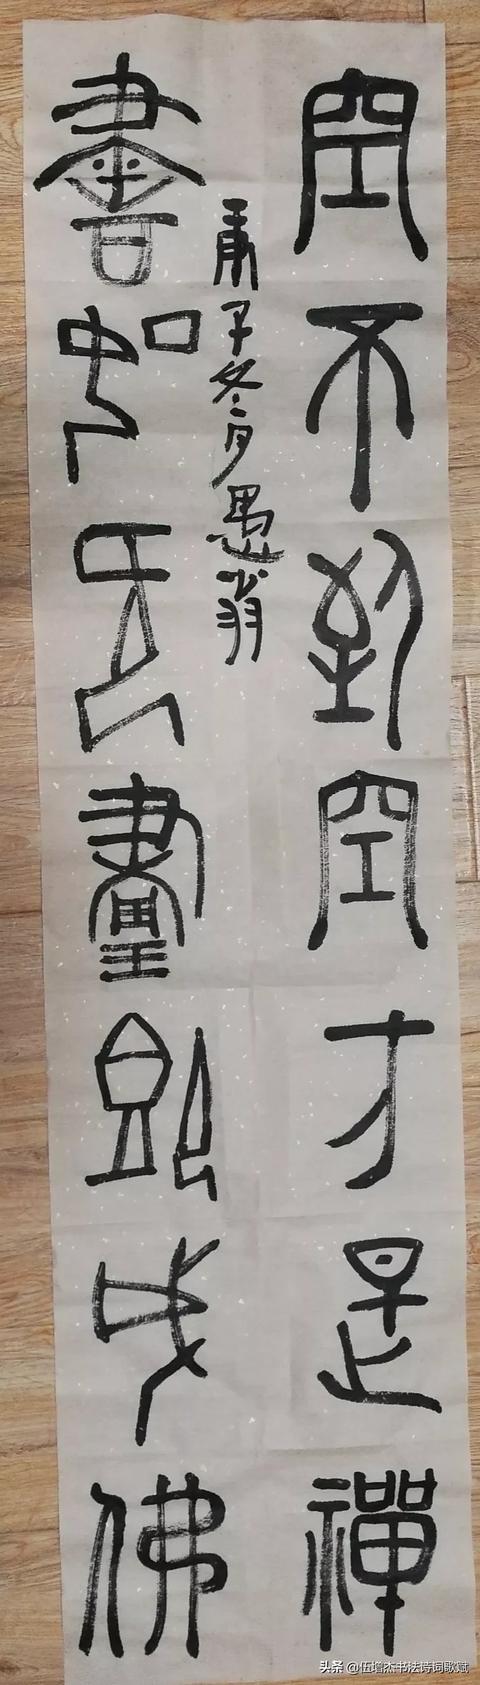 空不到空才是禪
書如畫即成佛
庚子冬月愚翁
头条 @伍增杰书法诗词歌赋